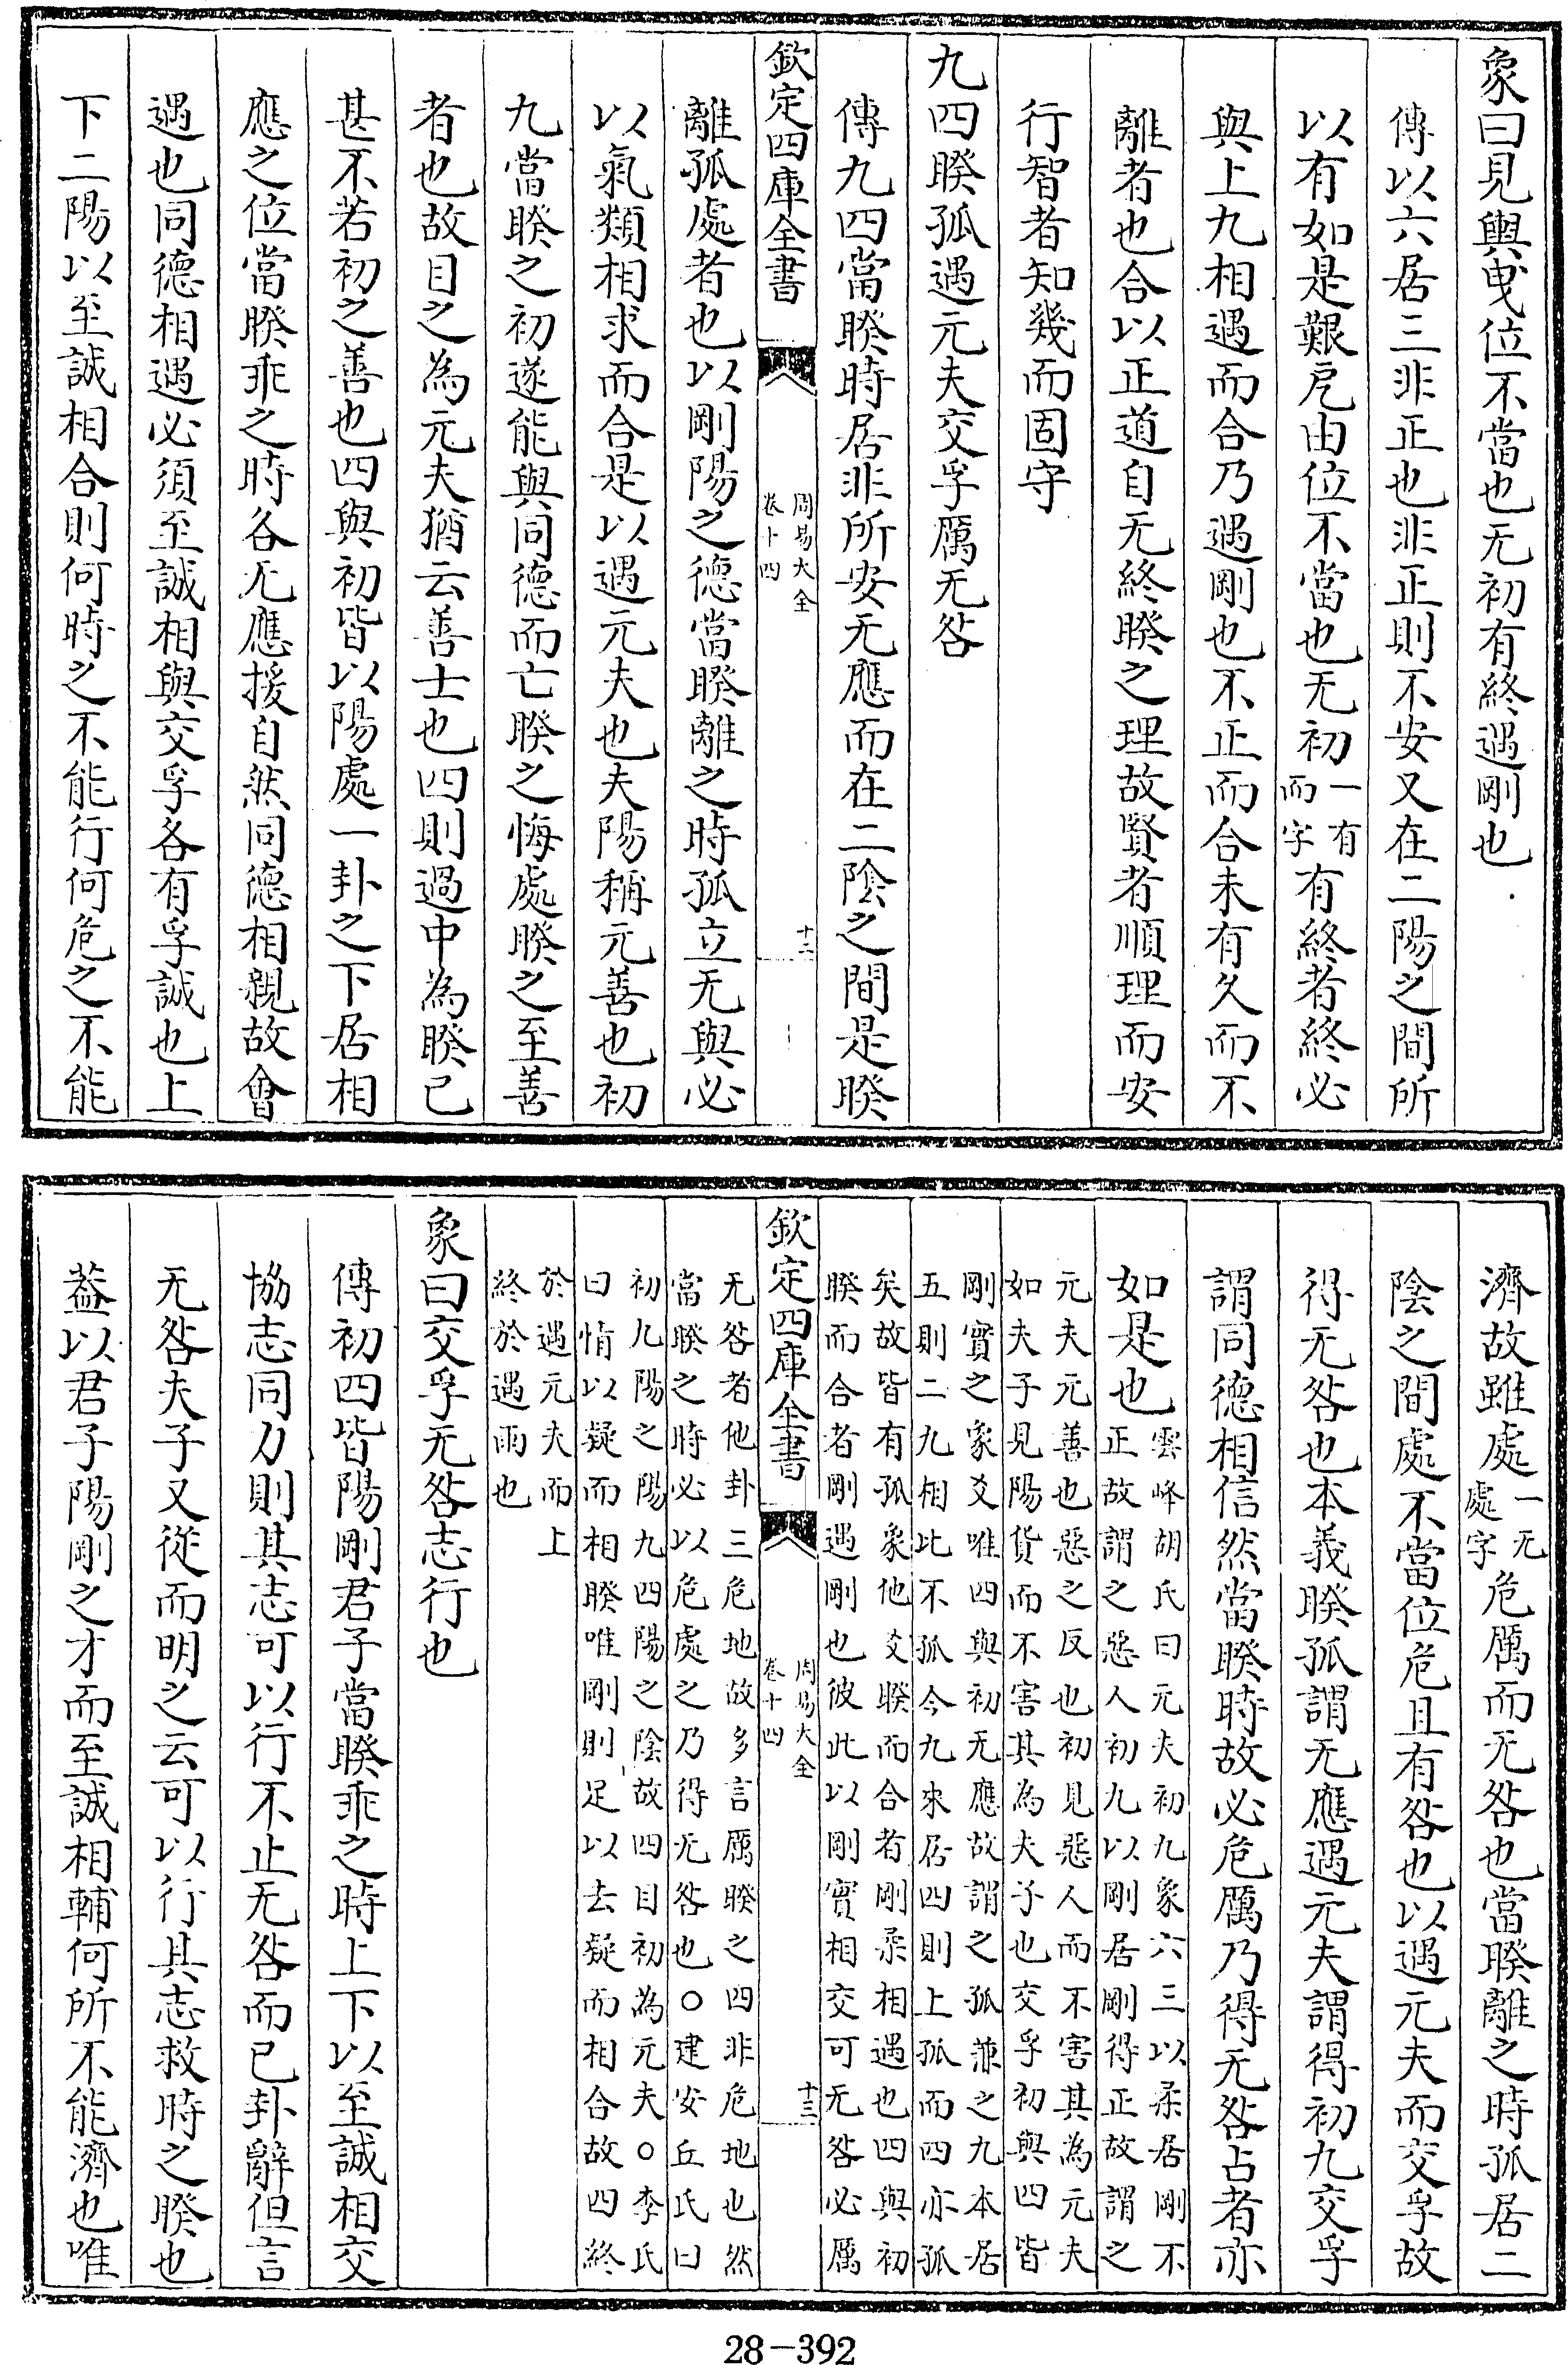 象曰見輿曳位不當也无初有終遇剛也
傳以六居三非正也非正則不安又在二陽之間所
以有如是艱戹由位不當也无初一有而字有終者終必
與上九相遇而合乃遇剛也不正而合未有久而不
離者也合以正道自无終睽之理故賢者順理而安
行智者知幾而固守
九四睽孤遇元夫交孚厲无咎
傳九四當睽時居非所安无應而在二陰之間是睽
欽定四庫全書
周易大全
卷十四
十二
離孤處者也以剛陽之德當睽離之時孤立无與必
以氣類相求而合是以遇元夫也夫陽稱元善也初
九當睽之初遂能與同德而亡睽之悔處睽之至善
者也故目之為元夫猶云善士也四則過中為睽已
甚不若初之善也四與初皆以陽處一卦之下居相
應之位當睽乖之時各无應援自然同德相親故會
遇也同德相遇必須至誠相與交孚各有孚誠也上
下二陽以至誠相合則何時之不能行何危之不能
濟故雖處一无處字危厲而无咎也當睽離之時孤居二
陰之間處不當位危且有咎也以遇元夫而交孚故
得无咎也本義睽孤謂无應遇元夫謂得初九交孚
謂同德相信然當睽時故必危厲乃得无咎占者亦
如是也雲峰胡氏曰元夫初九象六三以柔居剛不
正故謂之惡人初九以剛居剛得正故謂之
元夫元善也惡之反也初見惡人而不害其為元夫
如夫子見陽貨而不害其為夫子也交孚初與四皆
剛實之象爻唯四與初无應故謂之孤兼之九本居
五則二九相比不孤今九來居四則上孤而四亦孤
矣故皆有孤象他爻睽而合者剛柔相遇也四與初
睽而合者剛遇剛也彼此以剛實相交可无咎必厲
欽定四庫全書
周易大全
卷十四
十三
无咎者他卦三危地故多言厲睽之四非危地也然
當睽之時必以危處之乃得无咎也○建安丘氏曰
初九陽之陽九四陽之陰故四目初為元夫○李氏
曰情以疑而相睽唯剛則足以去疑而相合故四終
於遇元夫而上
終於遇雨也
象曰交孚无咎志行也
傳初四皆陽剛君子當睽乖之時上下以至誠相交
協志同力則其志可以行不止无咎而已卦辭但言
无咎夫子又從而明之云可以行其志救時之睽也
葢以君子陽剛之才而至誠相輔何所不能濟也唯
28-392